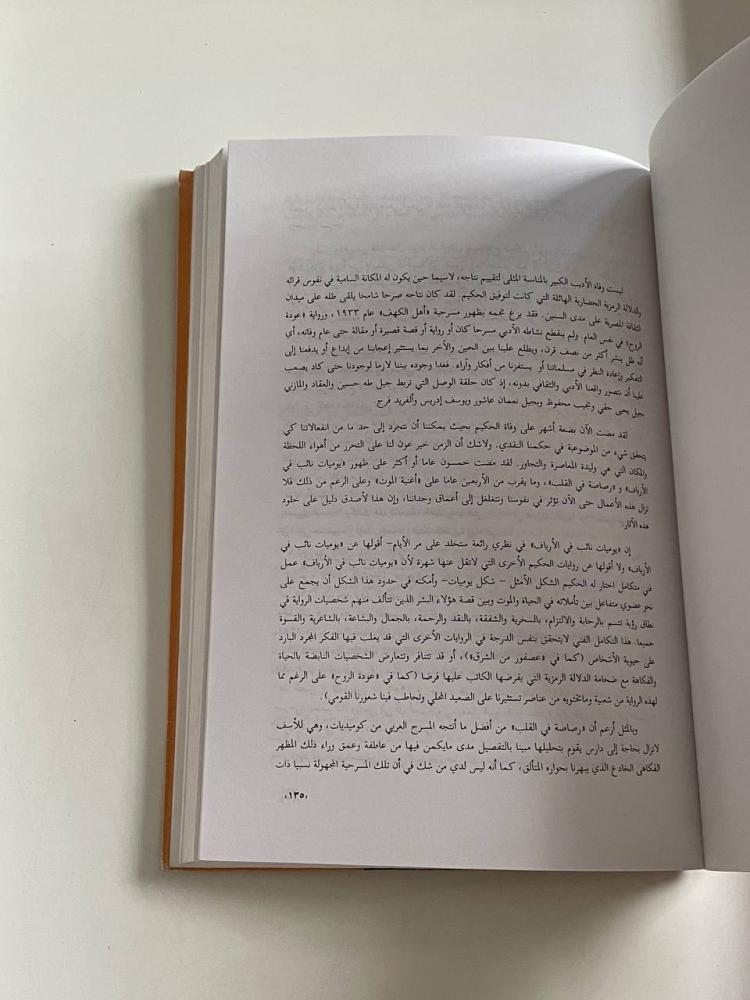 ليست وفاة الأديب الكبير بالمناسبة المثلى لتقييم نتاجه، لاسيما حين يكون له المكانة السامية في نفوس قرائه
والدلالة الرمزية الحضارية الهائلة التي كانت لتوفيق الحكيم. لقد كان نتاجه صرحا شامخا يلقى ظله على ميدان
الثقافة المصرية على مدى السنين. فقد بزغ نجمه بظهور مسرحية «أهل الكهف» عام ١٩٣٣، ورواية «عودة
الروح» في نفس العام. ولم ينقطع نشاطه الأدبي مسرحا كان أو رواية أو قصة قصيرة أو مقالة حتى عام وفاته، أي
أنه ظل ينشر أكثر من نصف قرن، ويطلع علينا بين الحين والآخر بما يستثير إعجابنا من إبداع أو يدفعنا إلى
التفكير وإعادة النظر في مسلماتنا أو يستفزنا من أفكار وآراء. فغدا وجوده بيننا لازما لوجودنا حتى كاد يصعب
علينا أن نتصور واقعنا الأدبي والثقافي بدونه، إذ كان حلقة الوصل التي تربط جيل طه حسين والعقاد والمازني
بجيل يحيى حقي ونجيب محفوظ وبجيل نعمان عاشور ويوسف إدريس وألفريد فرج.
لقد مضت الآن بضعة أشهر على وفاة الحكيم بحيث يمكننا أن نتجرد إلى حد ما من انفعالاتنا كي
يتحقق شيء من الموضوعية في حكمنا النقدي. ولاشك أن الزمن خير عون لنا على التحرر من أهواء اللحظة
والمكان التي هي وليدة المعاصرة والتجاور. لقد مضت خمسون عاما أو أكثر على ظهور «يوميات نائب في
الأرياف» و «رصاصة في القلب»، وما يقرب من الأربعين عاما على «أغنية الموت» وعلى الرغم من ذلك فلا
تزال هذه الأعمال حتى الآن تؤثر في نفوسنا وتتغلغل إلى أعماق وجداننا، وإن هذا لأصدق دليل على خلود
هذه الآثار.
إن «يوميات نائب في الأرياف» في نظري رائعة ستخلد على مر الأيام– أقولها عن «يوميات نائب في
الأرياف» ولا أقولها عن روايات الحكيم الأخرى التي لاتقل عنها شهرة لأن «يوميات نائب في الأرياف» عمل
فني متكامل اختار له الحكيم الشكل الأمثل – شكل يوميات– وأمكنه في حدود هذا الشكل أن يجمع على
نحو عضوي متفاعل بين تأملاته في الحياة والموت وبين قصة هؤلاء البشر الذين تتألف منهم شخصيات الرواية في
نطاق رؤية تتسم بالرحابة والالتزام، بالسخرية والشفقة، بالنقد والرحمة، بالجمال والبشاعة، بالشاعرية والقسوة
جميعا. هذا التكامل الفني لايتحقق بنفس الدرجة في الروايات الأخرى التي قد يغلب فيها الفكر المجرد البارد
على حيوية الأشخاص (كما في «عصفور من الشرق»)، أو قد تتنافر وتتعارض الشخصيات النابضة بالحياة
والفكاهة مع ضخامة الدلالة الرمزية التي يفرضها الكاتب عليها فرضا (كما في «عودة الروح» على الرغم مما
لهذه الرواية من شعبية وماتحتويه من عناصر تستثيرنا على الصعيد المحلي وتخاطب فينا شعورنا القومي).
وبالمثل أزعم أن «رصاصة في القلب» من أفضل ما أنتجه المسرح العربي من كوميديات، وهي للأسف
لاتزال بحاجة إلى دارس يقوم بتحليلها مبينا بالتفصيل مدى مايكمن فيها من عاطفة وعمق وراء ذلك المظهر
الفكاهى الخادع الذي يبهرنا بحواره المتألق، كما أنه ليس لدي من شك في أن تلك المسرحية المجهولة نسبيا ذات
(١٣٥)